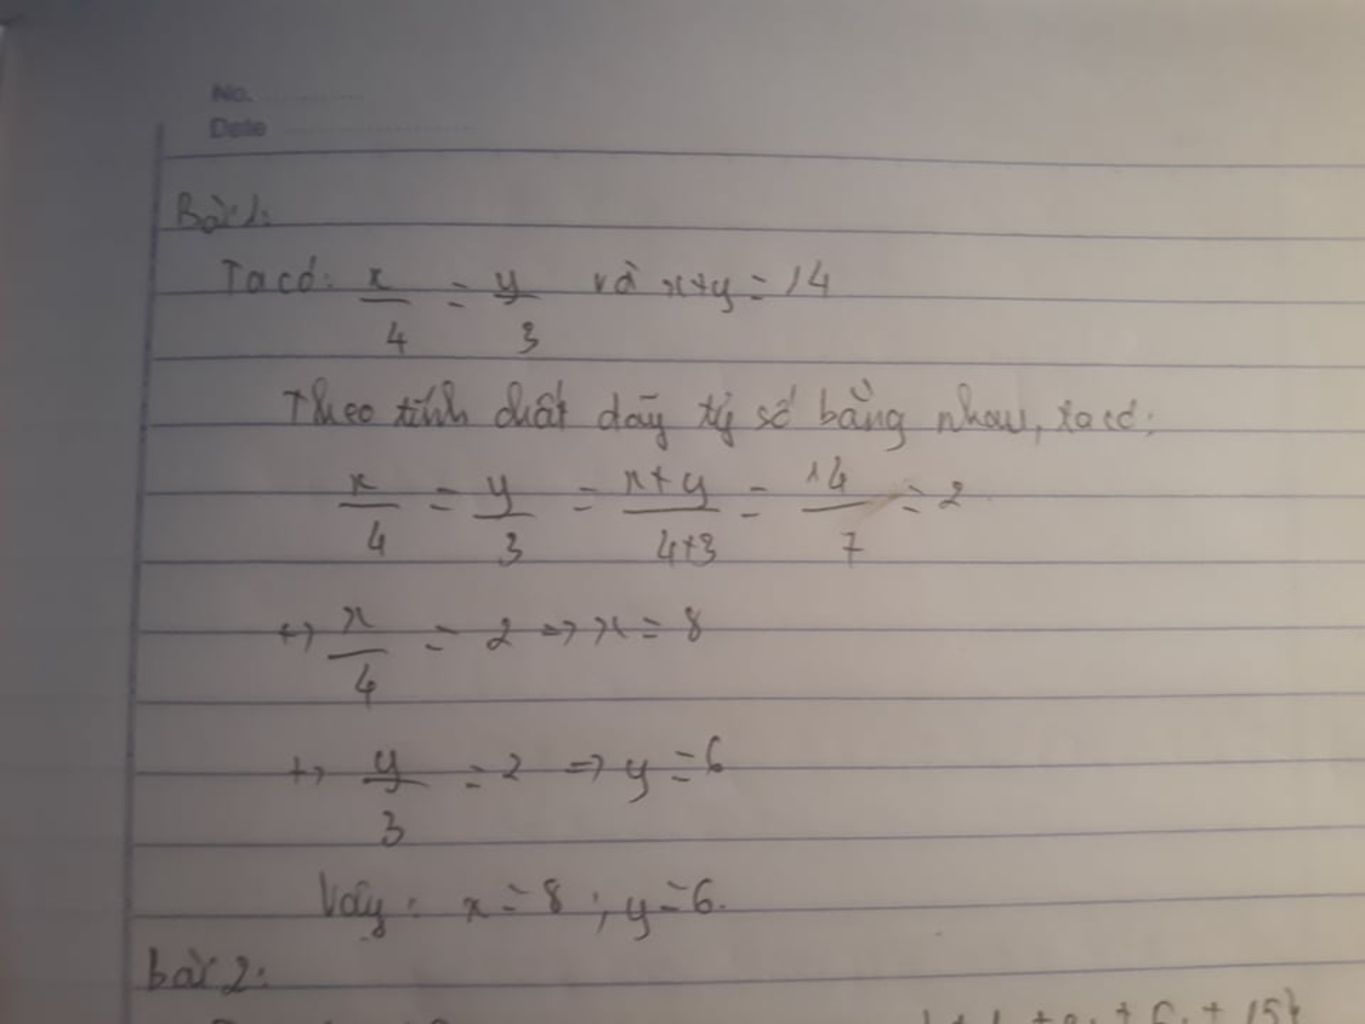 No.
Date
Bài 1:
Ta có: x/4 = y/3 và x+y = 14
Theo tính chất dãy tỷ số bằng nhau, ta có:
x/4 = y/3 = x+y/4+3 = 14/7 = 2
+) x/4 = 2 => x = 8
+) y/3 = 2 => y = 6
Vậy: x = 8 ; y = 6.
bài 2: